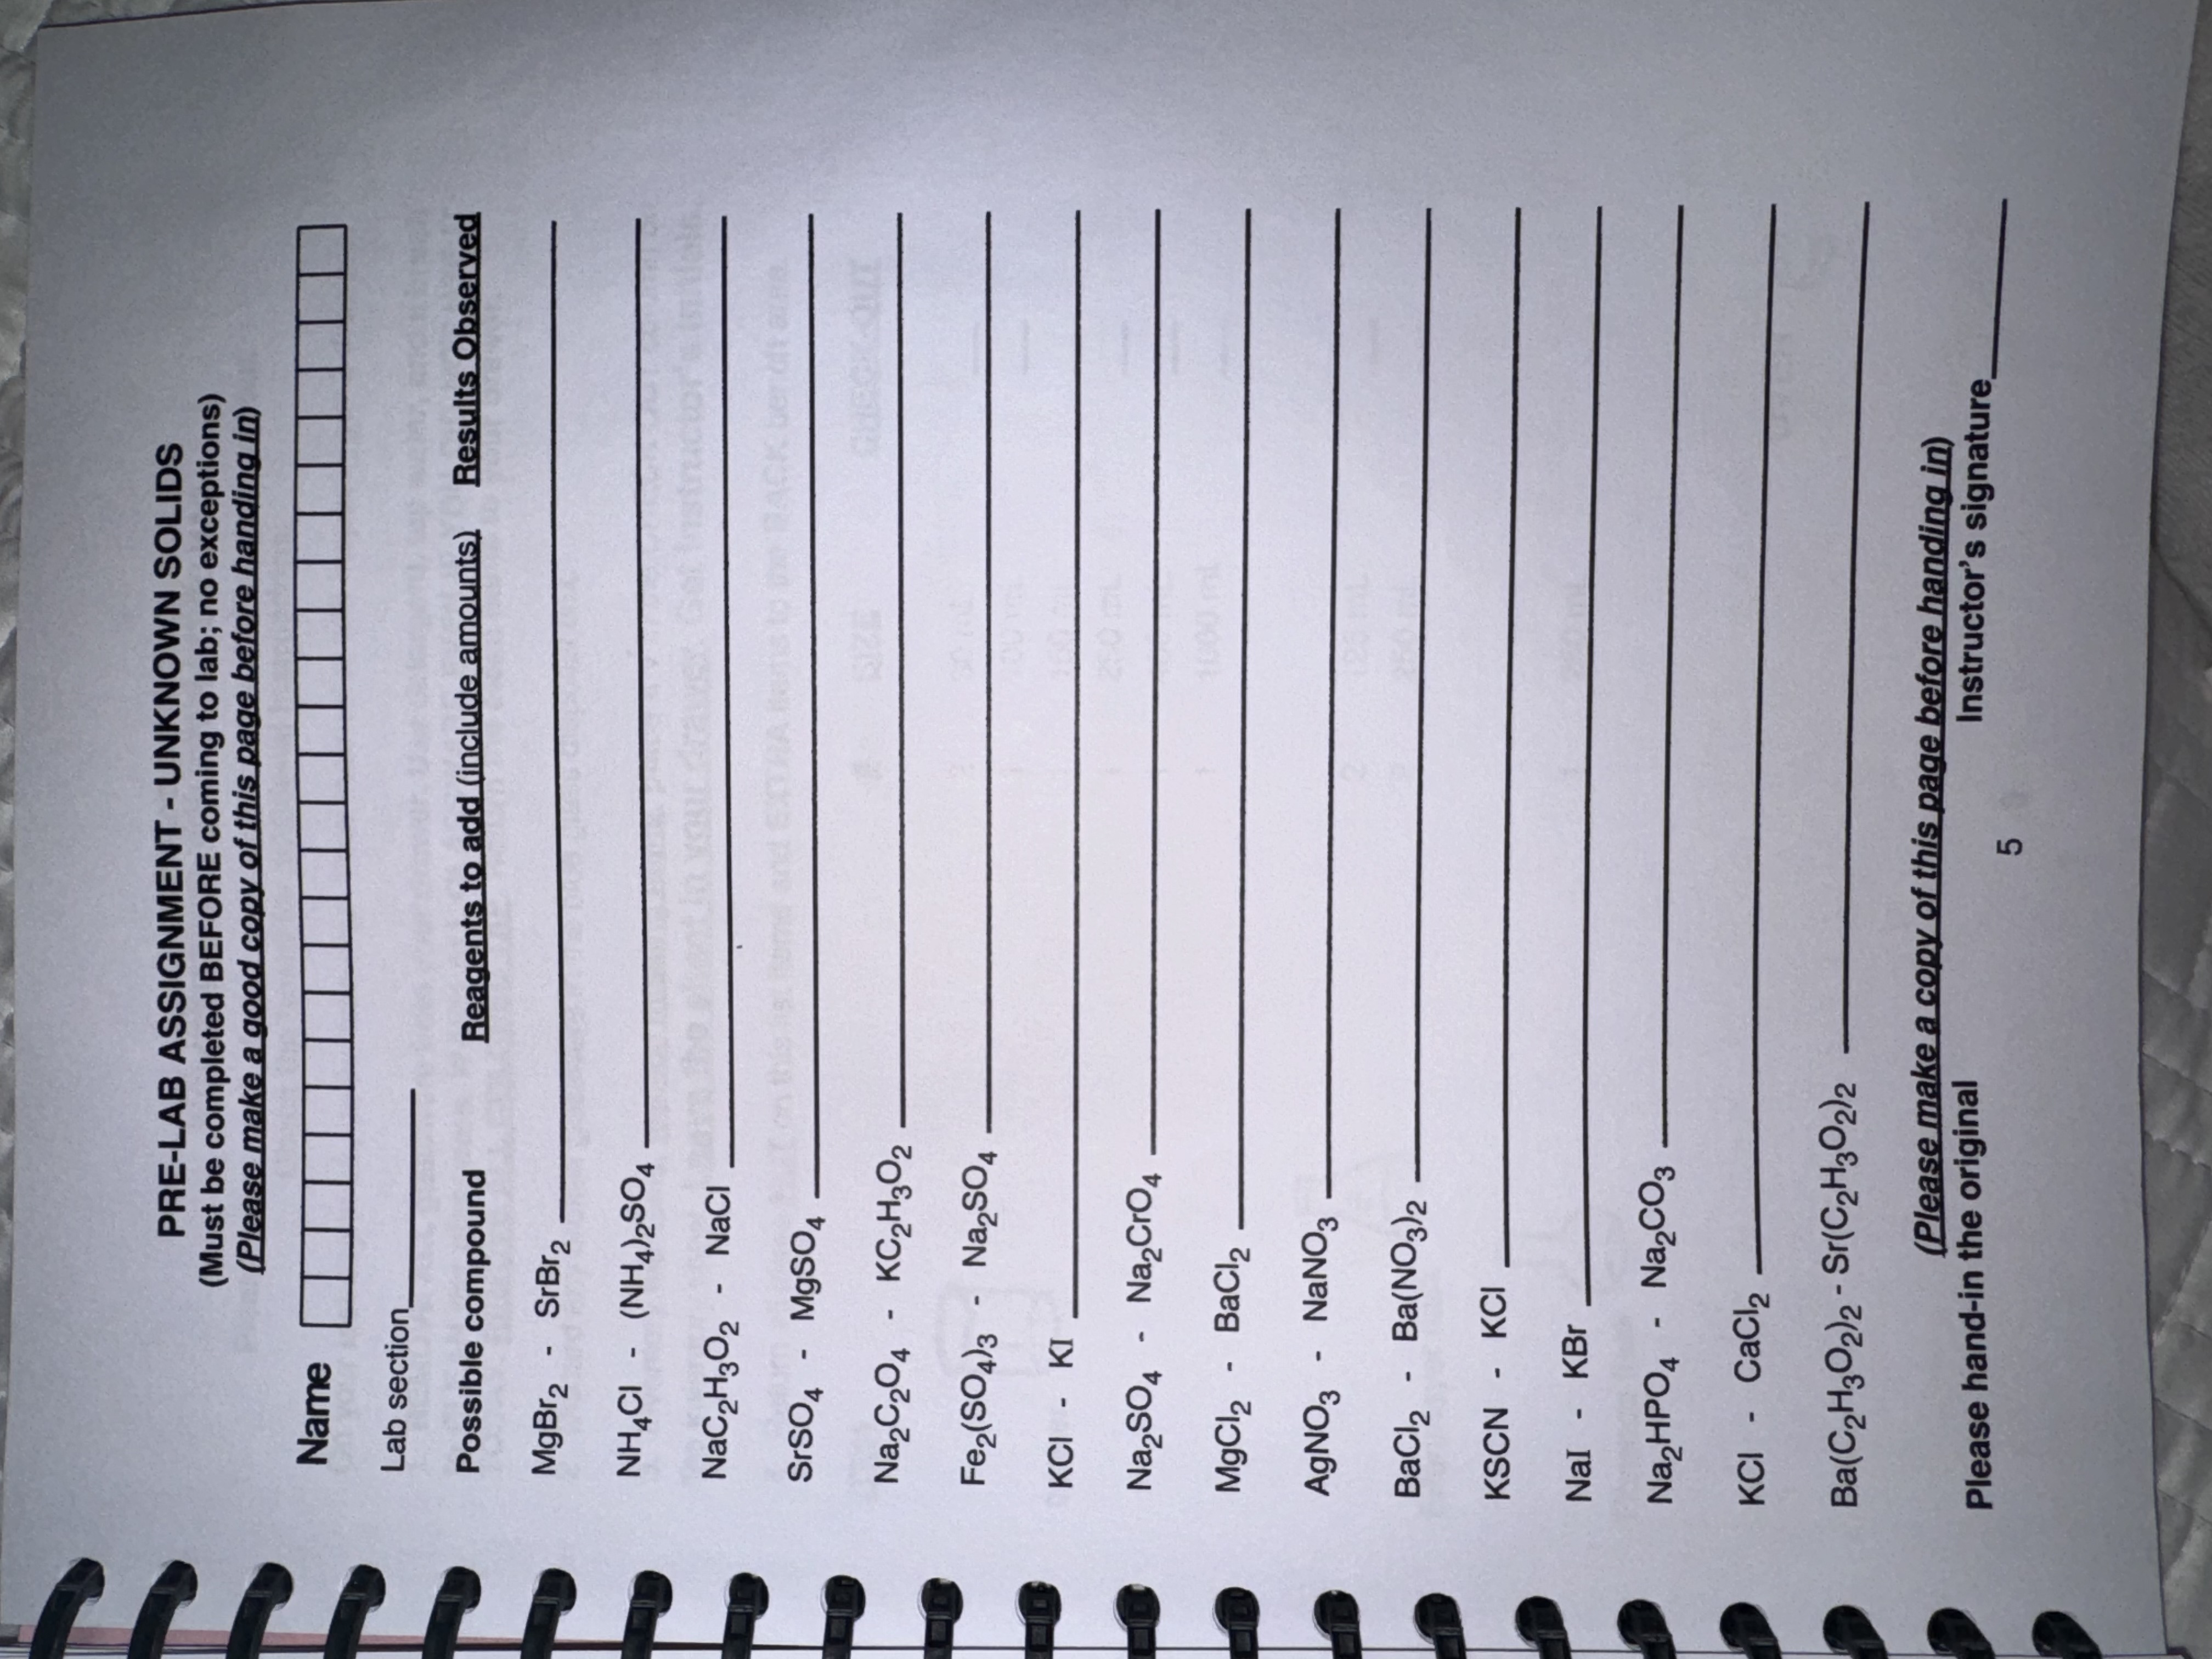 PRE-LAB ASSIGNMENT - UNKNOWN SOLIDS
(Must be completed BEFORE coming to lab; no exceptions)
(Please make a good copy of this page before handing in)
Name
Lab section
Possible compound Reagents to add (include amounts) Results Observed
MgBr₂ - SrBr₂
NH₄Cl - (NH₄)₂SO₄
NaC₂H₃O₂ - NaCl
SrSO₄ - MgSO₄
Na₂C₂O₄ - KC₂H₃O₂
Fe₂(SO₄)₃ - Na₂SO₄
KCl - KI
Na₂SO₄ - Na₂CrO₄
MgCl₂ - BaCl₂
AgNO₃ - NaNO₃
BaCl₂ - Ba(NO₃)₂
KSCN - KCl
NaI - KBr
Na₂HPO₄ - Na₂CO₃
KCl - CaCl₂
Ba(C₂H₃O₂)₂ - Sr(C₂H₃O₂)₂
(Please make a copy of this page before handing in)
Please hand-in the original Instructor's signature
5